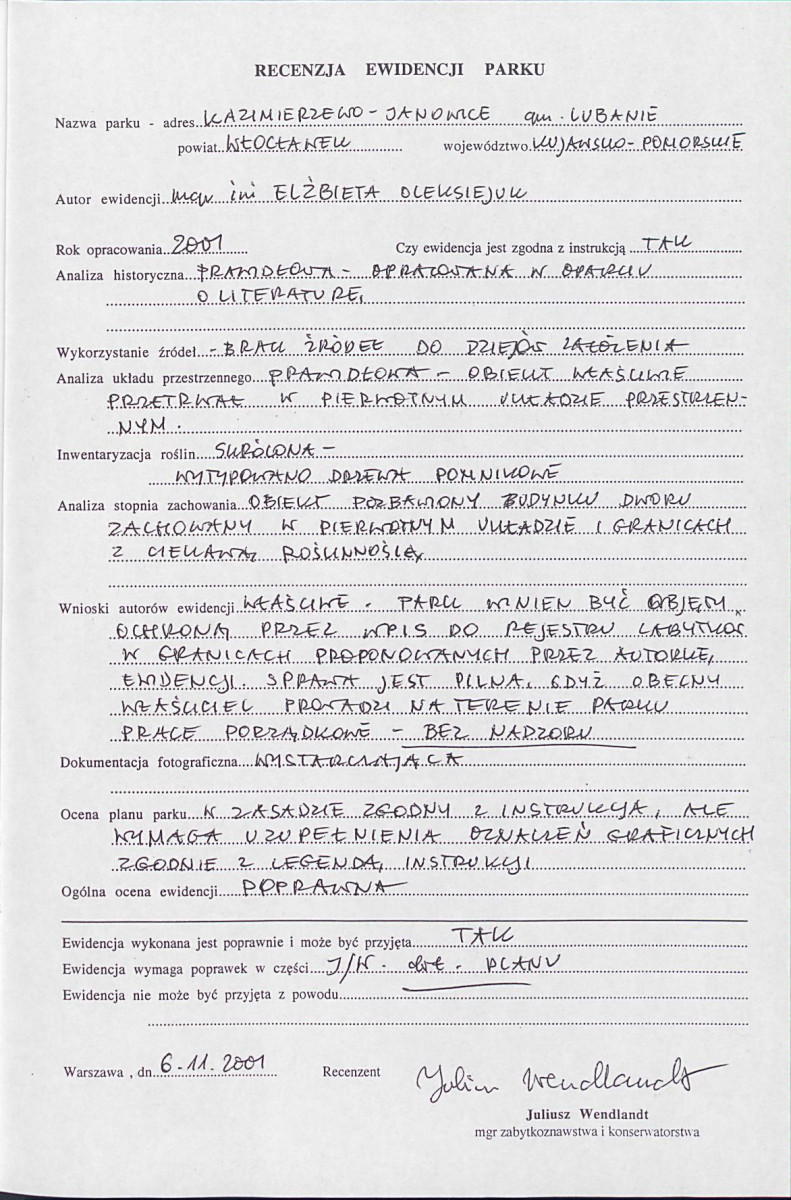 RECENZJA EWIDENCJI PARKU
Nazwa parku - adres..KAZIMIERZEWO - JANOWICE gm. LUBANIE
powiat..WŁOCŁAWEK województwo.KUJAWSKO - POMORSKIE
Autor ewidencji..mgr inż ELŻBIETA OLEKSIEJUK
Rok opracowania..2001 Czy ewidencja jest zgodna z instrukcją ....TAK
Analiza historyczna..PRAWIDŁOWA - OPRACOWANA W OPARCIU
O LITERATURĘ
Wykorzystanie źródeł..- BRAK ŹRÓDEŁ DO DZIEJÓW ZAŁOŻENIA
Analiza układu przestrzennego...PRAWIDŁOWA - OBIEKT WŁAŚCIWIE
PRZETRWAŁ W PIERWOTNYM UKŁADZIE PRZESTRZEN-
NYM.
Inwentaryzacja roślin...SKRÓCONA -
WYTYPOWANO DRZEWA POMNIKOWE
Analiza stopnia zachowania..OBIEKT POZBAWIONY BUDYNKU DWORU
ZACHOWANY W PIERWOTNYM UKŁADZIE I GRANICACH
Z CIEKAWĄ ROŚLINNOŚCIĄ
Wnioski autorów ewidencji.WŁAŚCIWE. PARK WINIEN BYĆ OBJĘTY
OCHRONĄ PRZEZ WPIS DO REJESTRU ZABYTKÓW
W GRANICACH PROPONOWANYCH PRZEZ AUTORKĘ
EWIDENCJI. SPRAWA JEST PILNA, GDYŻ OBECNY
WŁAŚCICIEL PROWADZI NA TERENIE PARKU
PRACE PORZĄDKOWE - BEZ NADZORU
Dokumentacja fotograficzna...WYSTARCZAJĄCA
Ocena planu parku..W ZASADZIE ZGODNY Z INSTRUKCJĄ, ALE
WYMAGA UZUPEŁNIENIA OZNACZEŃ GRAFICZNYCH
ZGODNIE Z LEGENDĄ INSTRUKCJI
Ogólna ocena ewidencji.....POPRAWNA
Ewidencja wykonana jest poprawnie i może być przyjęta........TAK
Ewidencja wymaga poprawek w części...J/W. dot. PLANU
Ewidencja nie może być przyjęta z powodu
Warszawa , dn..6.11.2001 Recenzent Juliusz Wendlandt
Juliusz Wendlandt
mgr zabytkoznawstwa i konserwatorstwa